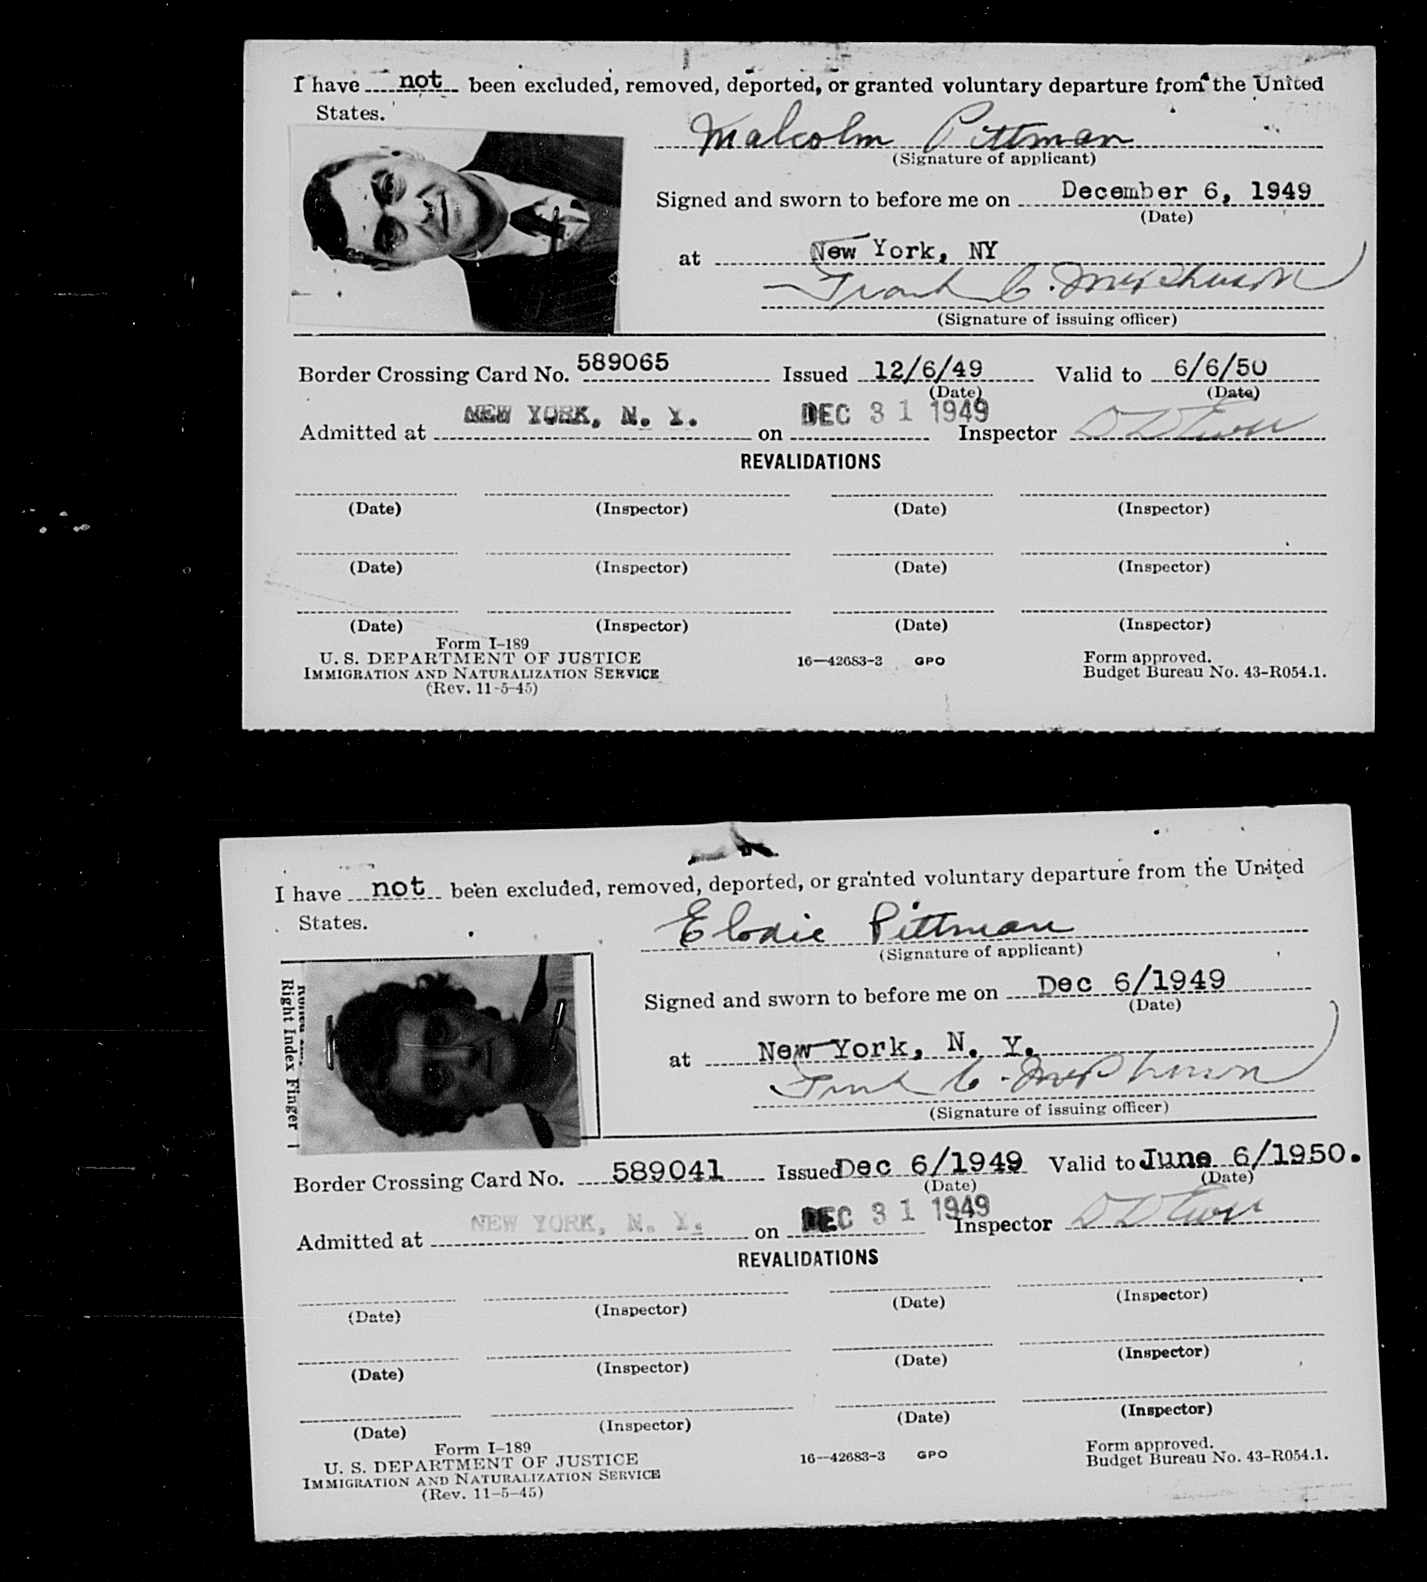 I have not been excluded, removed, deported, or granted voluntary departure from the United
States.
Malcolm Pittman
(Signature of applicant)
Signed and sworn to before me on December 6, 1949
(Date)
at New York, NY
Frank C. McPherson
(Signature of issuing officer)
Border Crossing Card No. 589065 Issued 12/6/49 Valid to 6/6/50
(Date) (Date)
Admitted at NEW YORK, N. Y. on DEC 31 1949 Inspector
REVALIDATIONS
(Date) (Inspector) (Date) (Inspector)
(Date) (Inspector) (Date) (Inspector)
(Date) (Inspector) (Date) (Inspector)
Form I-189
U. S. DEPARTMENT OF JUSTICE
IMMIGRATION AND NATURALIZATION SERVICE
(Rev. 11-5-45)
16—42683-3 GPO
Form approved.
Budget Bureau No. 43-R054.1.
I have not been excluded, removed, deported, or granted voluntary departure from the United
States.
Elodie Pittman
(Signature of applicant)
Right Index Finger
Signed and sworn to before me on Dec 6/1949
(Date)
at New York, N. Y.
Frank C. McPherson
(Signature of issuing officer)
Border Crossing Card No. 589041 Issued Dec 6/1949 Valid to June 6/1950.
(Date) (Date)
Admitted at NEW YORK, N. Y. on DEC 31 1949 Inspector
REVALIDATIONS
(Date) (Inspector) (Date) (Inspector)
(Date) (Inspector) (Date) (Inspector)
(Date) (Inspector) (Date) (Inspector)
Form I-189
U. S. DEPARTMENT OF JUSTICE
IMMIGRATION AND NATURALIZATION SERVICE
(Rev. 11-5-45)
16—42683-3 GPO
Form approved.
Budget Bureau No. 43-R054.1.